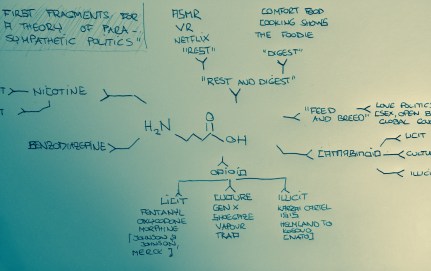 FIRST FRAGMENTS FOR
A THEORY OF PARA-
SYMPATHETIC POLITICS"
ASMR
VR
NETFLIX
"REST"
COMFORT FOOD
COOKING SHOWS
THE FOODIE
"DIGEST"
"REST AND DIGEST"
NICOTINE
"FEED
AND BREED"
LOVE POLITICS
(SEX, OPEN
GLOBAL
H₂N
O
OH
BENZODIAZEPINE
CANNABINOID
LICIT
CULTURE
ILLICIT
OPIOID
LICIT
FENTANYL
OXYCODONE
MORPHINE
[JOHNSON &
JOHNSON,
MERCK]
CULTURE
GEN X
SHOEGAZE
VAPOUR
TRAP
ILLICIT
CARTEL
ISIS
HELMAND TO
KOSOVO
[NATO]